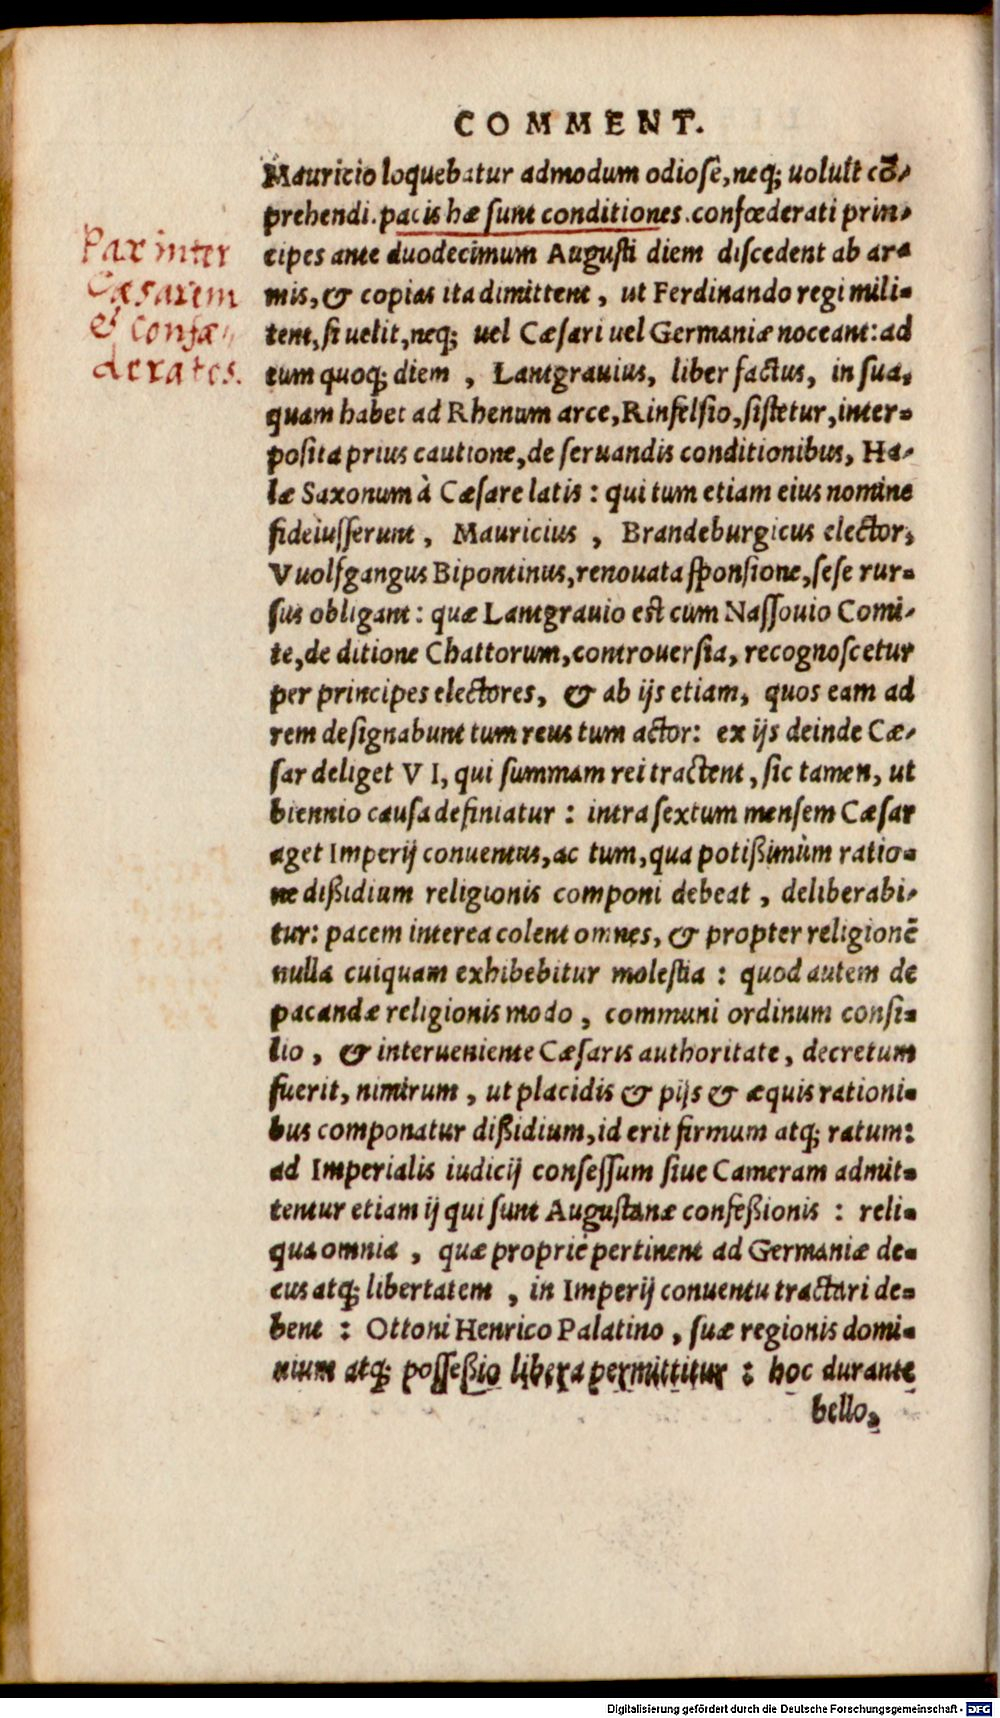 COMMENT.
Mauricio loquebatur admodum odiose, neq; uoluit cō-
prehendi. pacis hæ sunt conditiones. confœderati prin-
cipes ante duodecimum Augusti diem discedent ab ar-
mis, & copias ita dimittent, ut Ferdinando regi mili-
tent, si uelit, neq; uel Cæsari uel Germaniæ noceant: ad
eum quoq; diem, Lantgrauius, liber factus, in sua,
quam habet ad Rhenum arce, Rinfelsio, sistetur, inter-
posita prius cautione, de seruandis conditionibus, Ha-
læ Saxonum à Cæsare latis: qui tum etiam eius nomine
fideiusserunt, Mauricius, Brandeburgicus elector,
Vuolfgangus Bipontinus, renouata sponsione, sese rur-
sus obligant: quæ Lantgrauio est cum Nassouio Comi-
te, de ditione Chattorum, controuersia, recognoscetur
per principes electores, & ab ijs etiam, quos eam ad
rem designabunt tum reus tum actor: ex ijs deinde Cæ-
sar deliget VI, qui summam rei tractent, sic tamen, ut
biennio causa definiatur: intra sextum mensem Cæsar
aget Imperij conuentus, ac tum, qua potißimùm ratio-
ne dißidium religionis componi debeat, deliberabi-
tur: pacem interea colent omnes, & propter religionē
nulla cuiquam exhibebitur molestia: quod autem de
pacandæ religionis modo, communi ordinum consi-
lio, & interueniente Cæsaris authoritate, decretum
fuerit, nimirum, ut placidis & pijs & æquis rationi-
bus componatur dißidium, id erit firmum atq; ratum:
ad Imperialis iudicij consessum siue Cameram admit-
tentur etiam ij qui sunt Augustanæ confeßionis: reli-
qua omnia, quæ propriè pertinent ad Germaniæ de-
cus atq; libertatem, in Imperij conuentu tractari de-
bent: Ottoni Henrico Palatino, suæ regionis domi-
nium atq; possessio libera permittitur: hoc durante
bello,
Pax inter
Cæsarem
& confæ-
deratos.
Digitalisierung gefördert durch die Deutsche Forschungsgemeinschaft - DFG